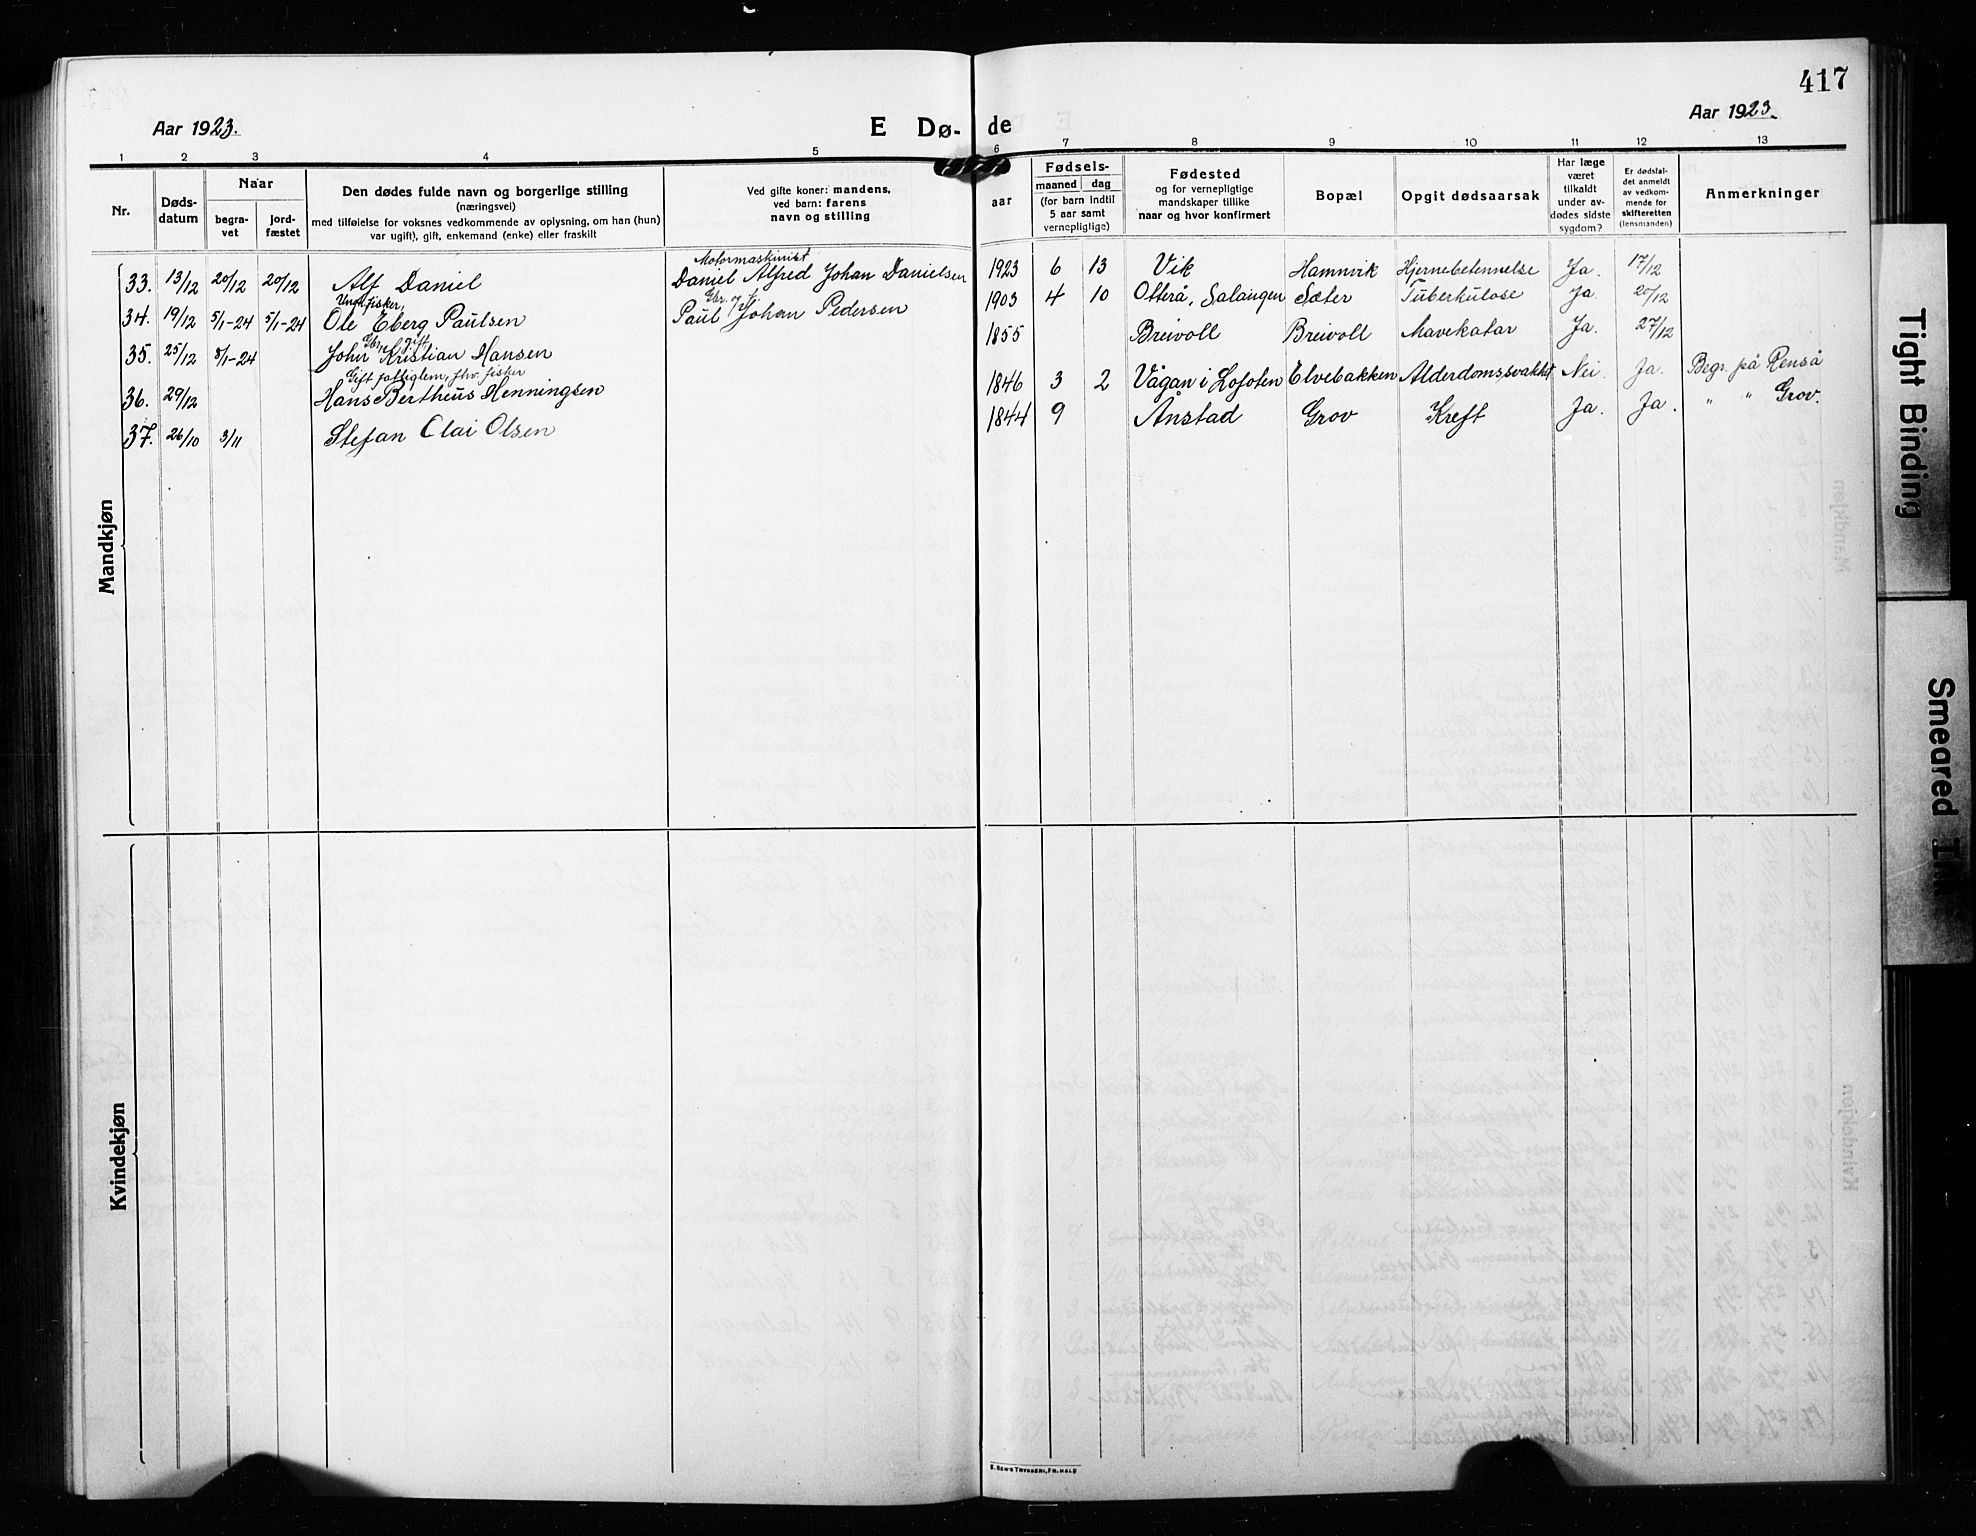 417
Aar 1923.
E Dø- de
Aar 1923.
1 2 3 4 5 6 7 8 9 10 11 12 13
Nr.
Døds-
datum
Naar
begra-
vet
jord-
fæstet
Den dødes fulde navn og borgerlige stilling
(næringsvei)
med tilføielse for voksnes vedkommende av oplysning, om han (hun)
var ugift), gift, enkemand (enke) eller fraskilt
Ved gifte koner: mandens,
ved barn: farens
navn og stilling
aar
Fødsels-
maaned dag
(for barn indtil
5 aar samt
vernepligtige)
Fødested
og for vernepligtige
mandskaper tillike
naar og hvor konfirmert
Bopæl
Opgit dødsaarsak
Har læge
været
tilkaldt
under av-
dødes sidste
sygdom?
Er dødsfal-
det anmeldt
av vedkom-
mende for
skifteretten
(lensmanden)
Anmerkninger
Motormaskinist
33. 13/12 20/12 20/12 Alf Daniel Daniel Alfred Johan Danielsen 1923 6 13 Vik Hamnvik Hjernebetennelse Ja. 17/12
Ungk. fisker, Gbr. og fi.
34. 19/12 5/1-24 5/1-24 Ole Eberg Paulsen Paul Johan Pedersen 1903 4 10 Otterå, Salangen Sæter Tuberkulose Ja 20/12
Gbr. gift
35. 25/12 8/1-24 John Kristian Hansen 1855 Breivoll Breivoll Mavekatar Ja. 27/12
Gift fattiglem, fhv. fisker
36. 29/12 Hans Bertheus Henningsen 1846 3 2 Vågan i Lofoten Elvebakken Alderdomssvakhet Nei. Ja. Begr. på Renså
37. 26/10 3/11 Stefan Clai Olsen 1844 9 Ånstad Grov Kreft Ja. Ja. " " Grov.
Mandkjøn
Kvindekjøn
E. SEM'S TRYKKERI, FR.HALD
Tight Binding
Smeared Ink